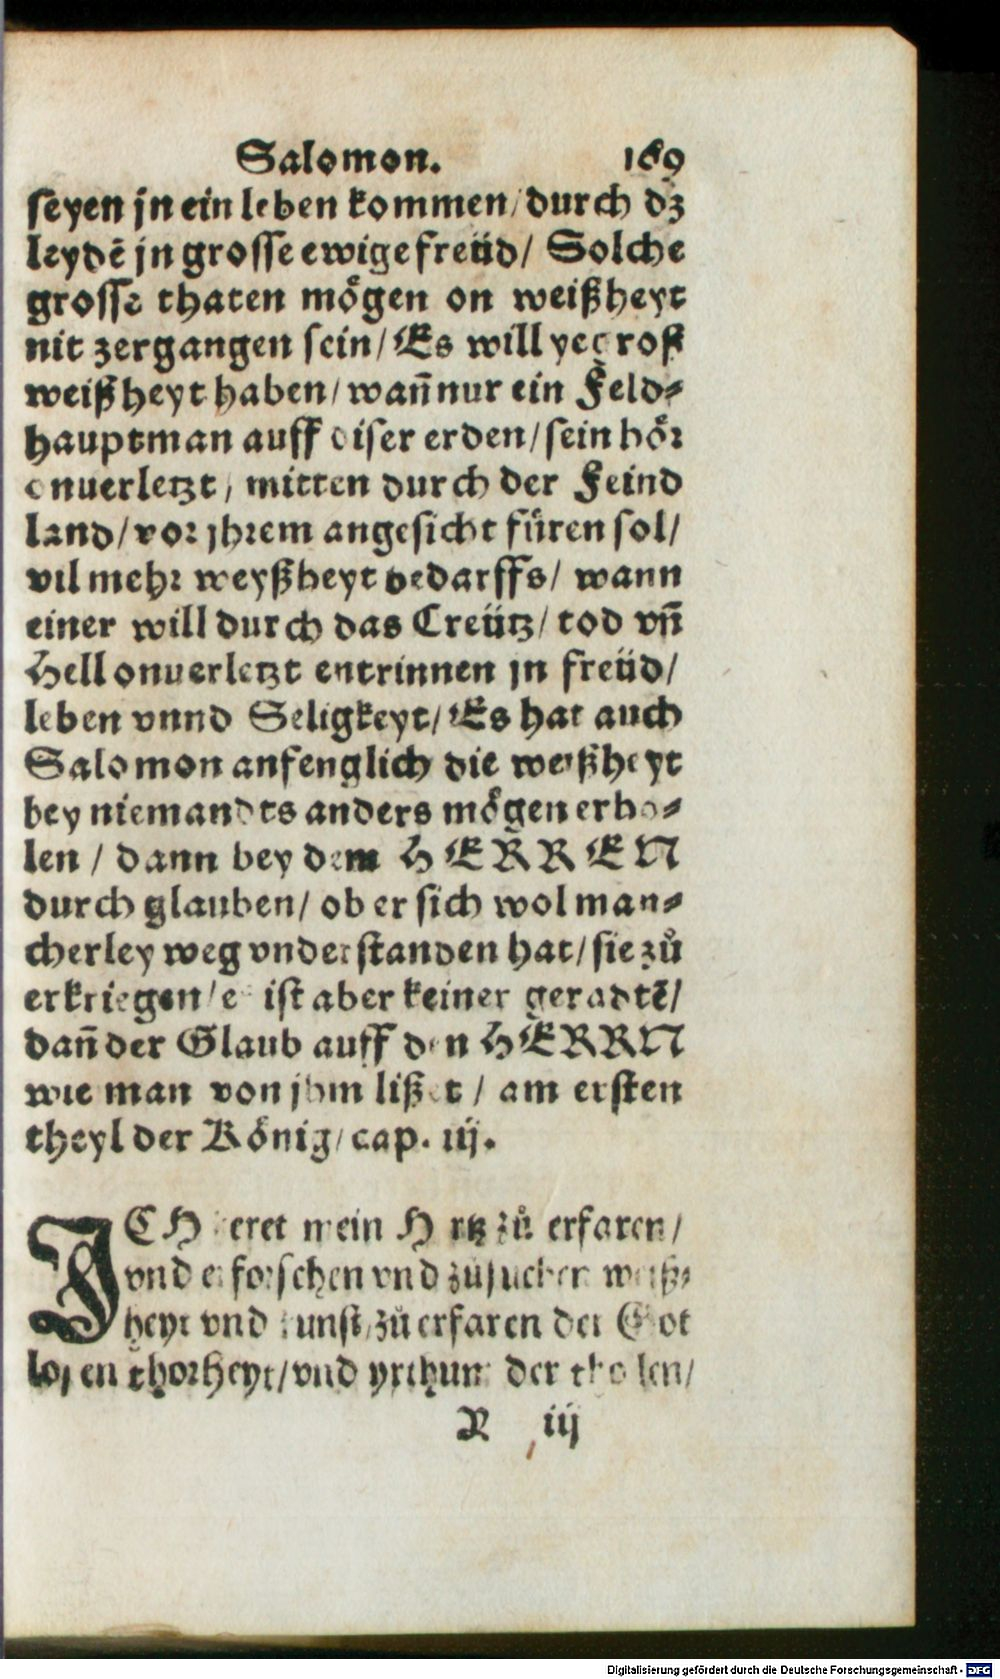 Salomon. 169
seyen jn ein leben kommen/durch dz
leydē jn grosse ewige freüd/ Solche
grosse thaten mögen on weißheyt
nit zergangen sein/Es will ye groß
weißheyt haben/wañ nur ein Feld⸗
hauptman auff diser erden/sein hör
onuerletzt/ mitten durch der Feind
land/vor jhrem angesicht füren sol/
vil mehr weyßheyt bedarffs/ wann
einer will durch das Creütz/tod vñ
Hell onuerletzt entrinnen jn freüd/
leben vnnd Seligkeyt/Es hat auch
Salomon anfenglich die weißheyt
bey niemandts anders mögen erho⸗
len / dann bey dem HERREN
durch glauben/ ob er sich wol man⸗
cherley weg vnderstanden hat/sie zů
erkriegen/es ist aber keiner geradtē/
dañ der Glaub auff den HERRN
wie man von jhm lißet / am ersten
theyl der König/cap. iij.
ICH keret mein Hertz zů erfaren/
vnd erforschen vnd zůsuchen weiß⸗
heyt vnd kunst/zů erfaren der Got
losen thorheyt/vnd yrthum der thollen/
R iij
Digitalisierung gefördert durch die Deutsche Forschungsgemeinschaft - DFG